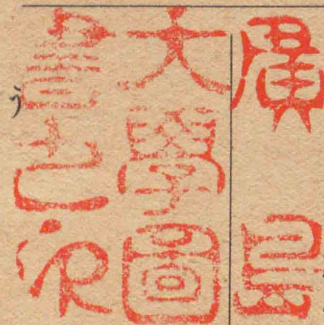 廣島
大學圖
書印